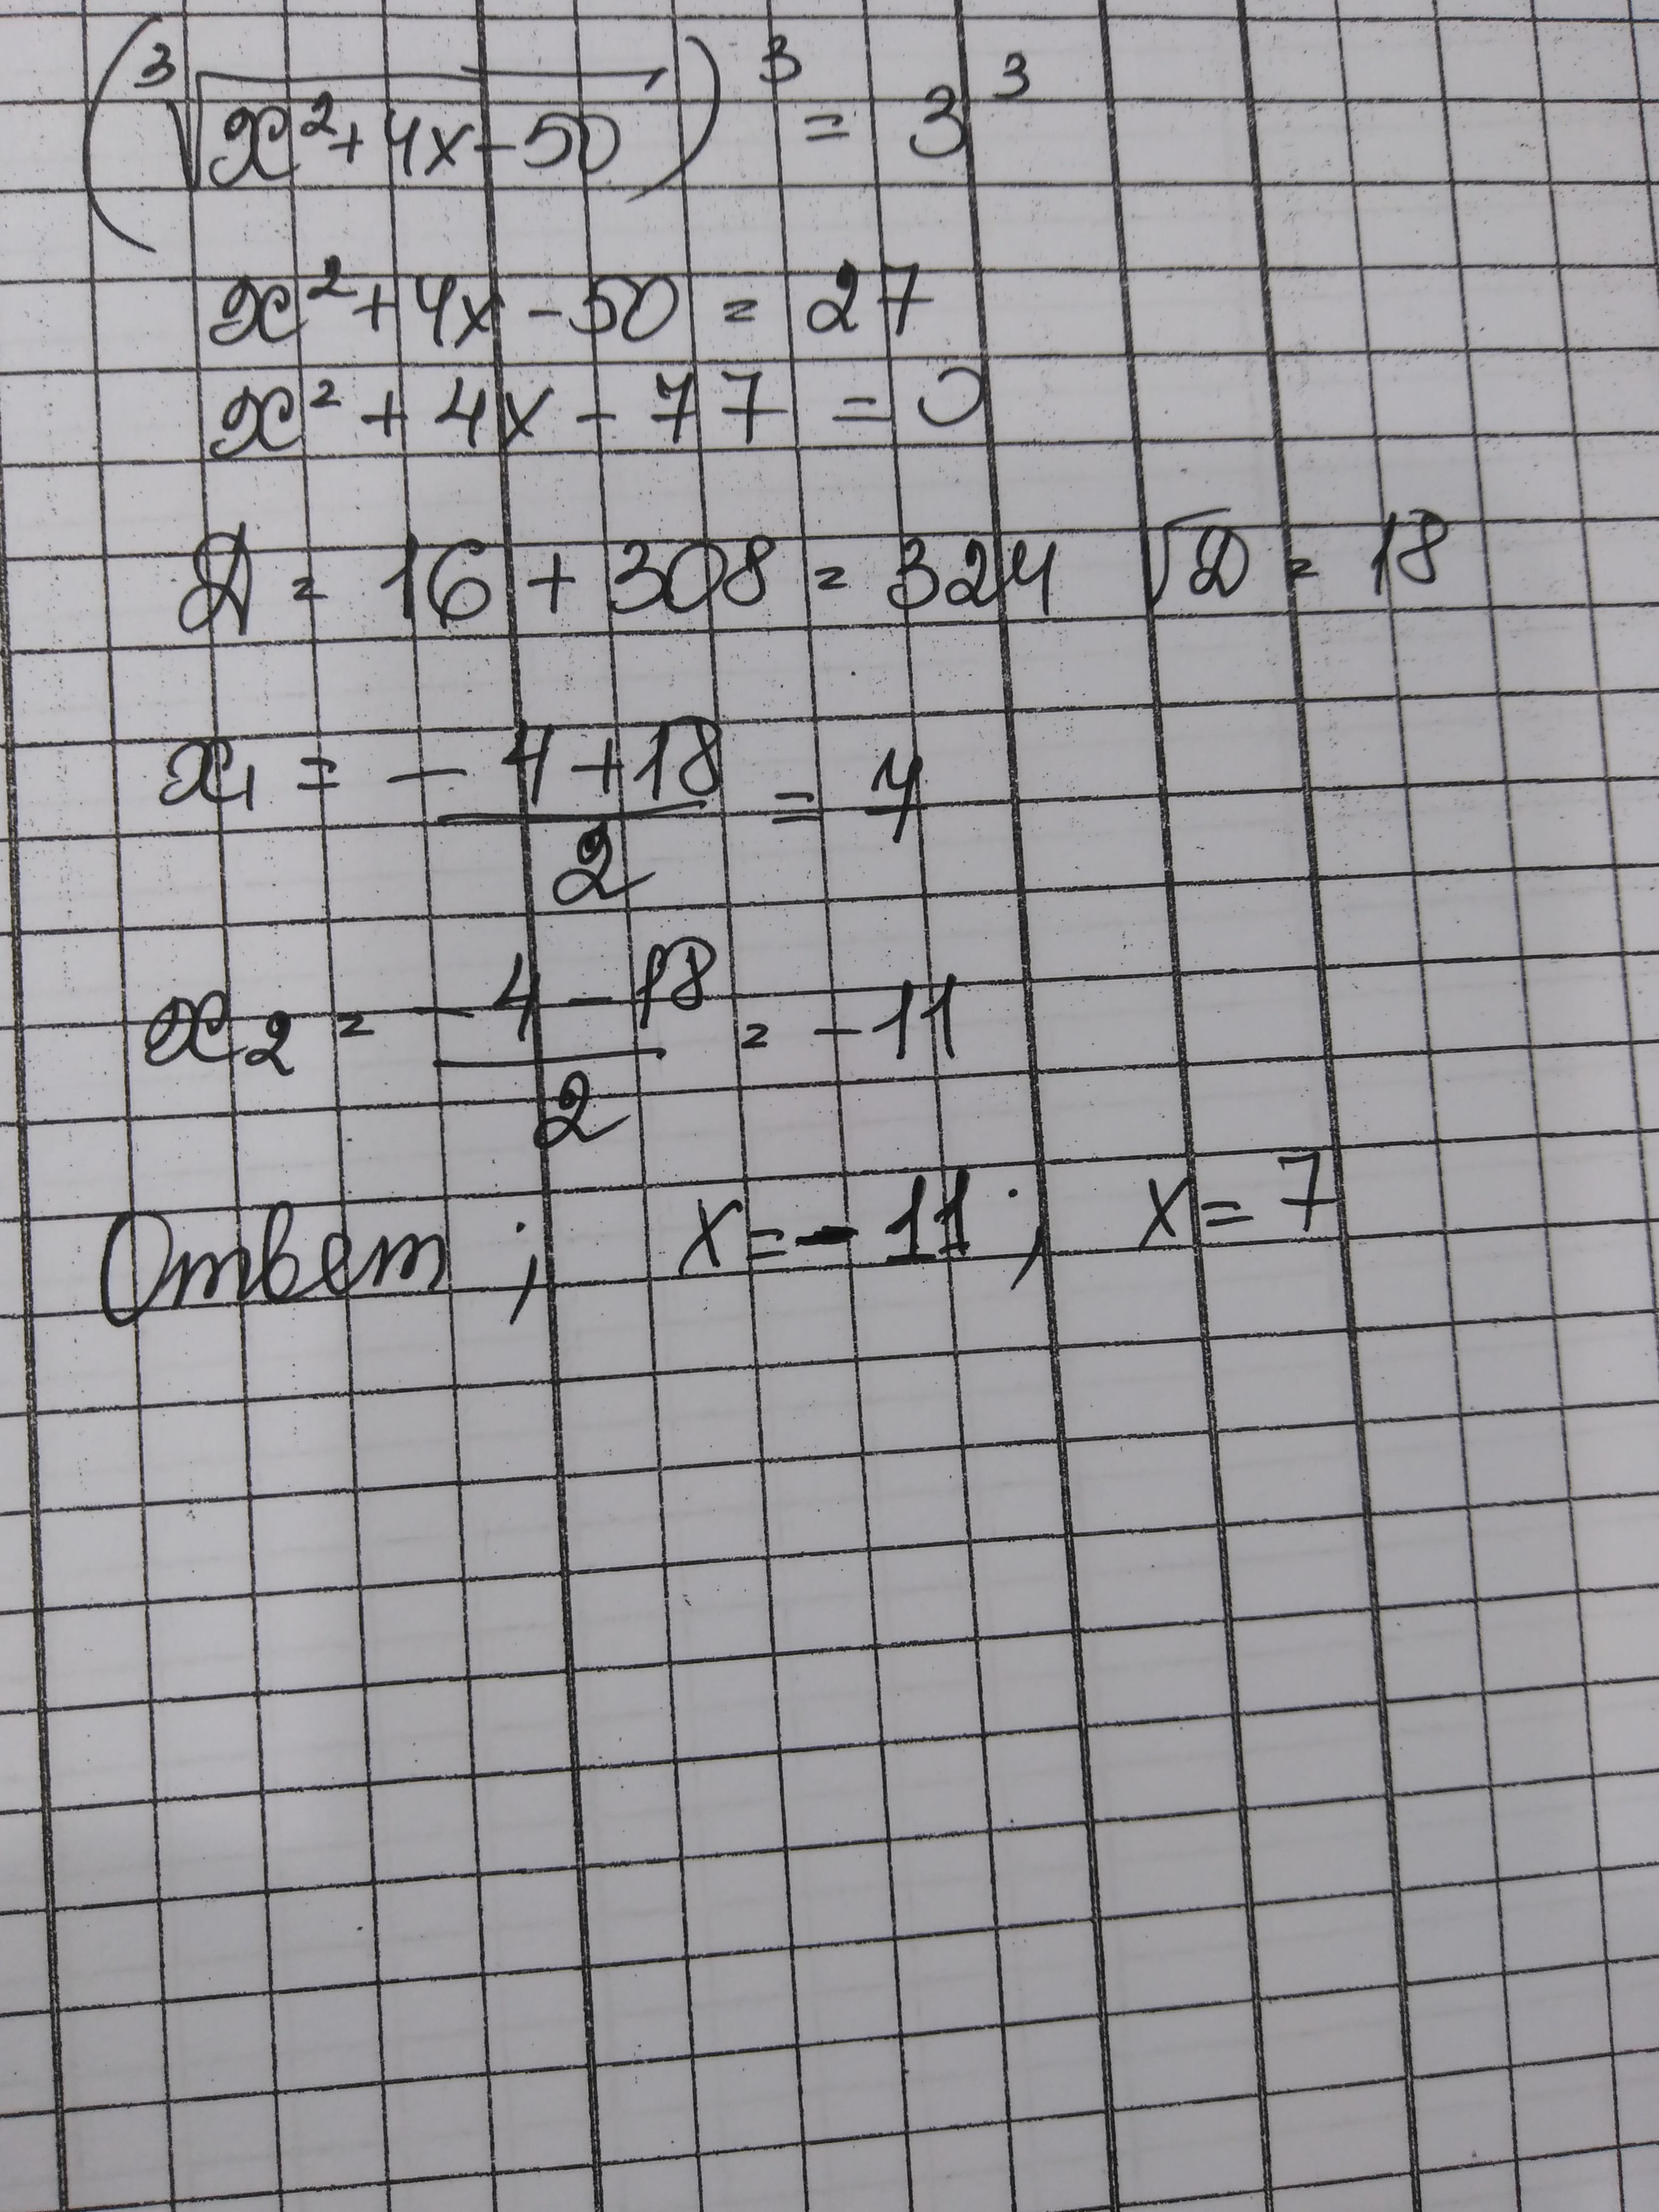 (∛(x²+4x-50))³ = 3³
x²+4x-50 = 27
x²+4x-77 = 0
D = 16+308 = 324 √D = 18
x₁ = (-4+18)/2 = 7
x₂ = (-4-18)/2 = -11
Ответ; x=-11; x=7